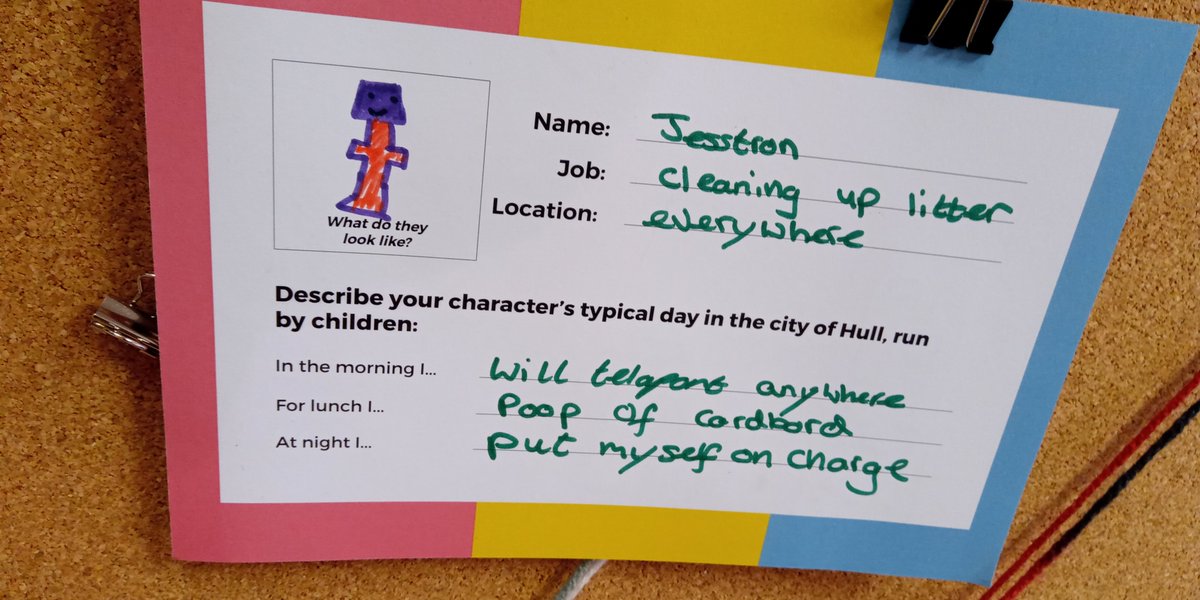 What do they
look like?
Name: Jesstron
Job: cleaning up litter
Location: everywhere
Describe your character's typical day in the city of Hull, run
by children:
In the morning I... will telgport anywhere
For lunch I... Poop of cardbord
At night I... put myself on charge